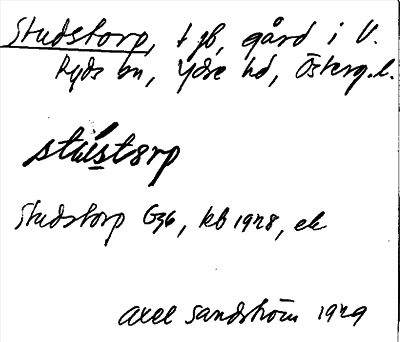 Studstorp, t jb, gård i V.
Ryds sn, Ydre hd, Österg. l.
stústorp
Studstorp G36, kb 1928, ek
Axel Sandström 1929